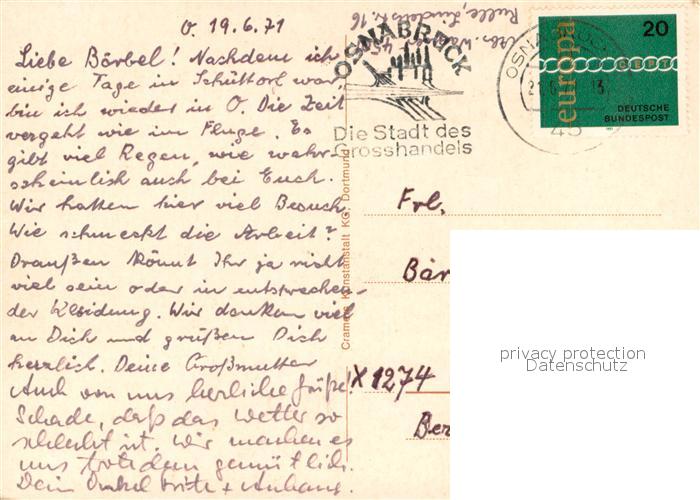 O. 19.6.71
Liebe Bärbel! Nachdem ich
einige Tage in Schüttorf war,
bin ich wieder in O. Die Zeit
vergeht wie im Fluge. Es
gibt viel Regen, wie wahr-
scheinlich auch bei Euch.
Wir hatten hier viel Besuch
Wie schmeckt die Arbeit?
Draußen könnt Ihr ja nicht
viel sein oder in entsprechen-
der Kleidung. Wir danken viel
an Dich und grüßen Dich
herzlich. Deine Großmutter
Auch von uns herzliche Grüße.
Schade, daß das Wetter so
schlecht ist. Wir machen es
uns trotzdem gemütlich.
Dein Onkel Fritz + Anhang.
Cramers Kunstanstalt KG, Dortmund
OSNABRÜCK
Die Stadt des
Grosshandels
Abs.
45
Rulle, Lindenstr. 16
OSNABRÜCK
21.6.
13
45
europa
20
CEPT
DEUTSCHE
BUNDESPOST
Frl.
Bär
X 1274
Ber
privacy protection
Datenschutz